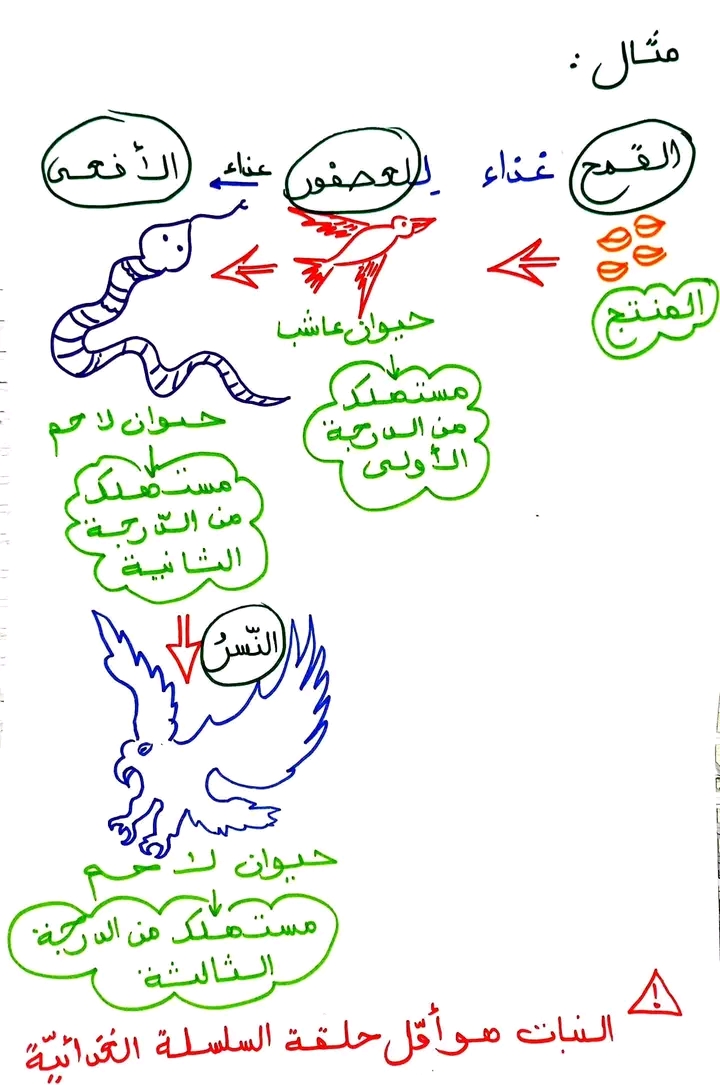 مثال :
القمح غذاء للعصفور غذاء الأفعى
المنتج
حيوان عاشب
مستهلك
من الدرجة
الأولى
حيوان لاحم
مستهلك
من الدّرجة
الثانية
النّسرُ
حيوان لاحم
مستهلك من الدرجة
الثالثة
!
النبات هو أوّل حلقة السلسلة الغذائيّة